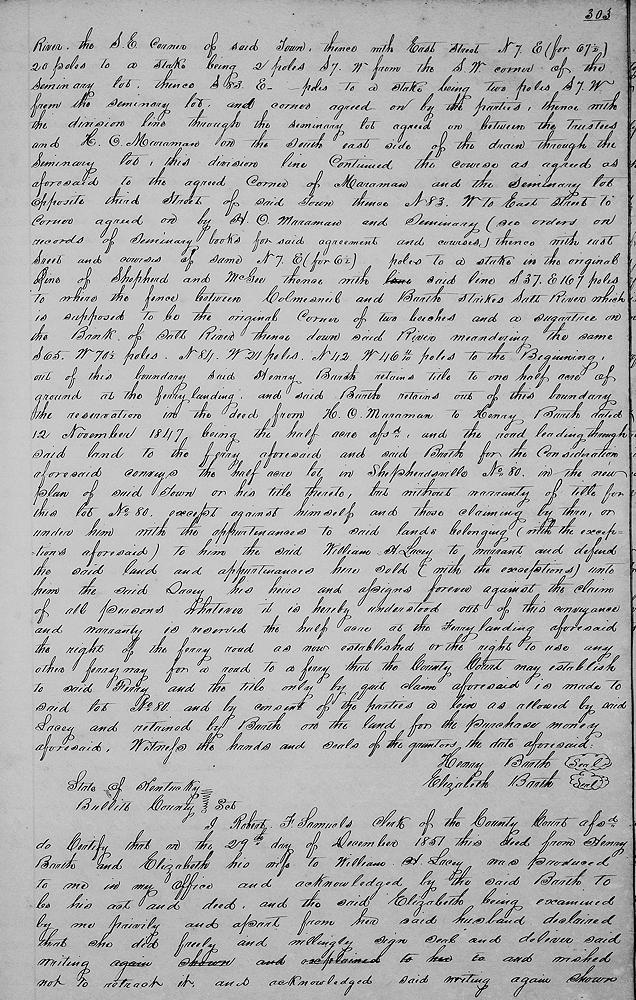 303
River. the S. E. Corner of said Town, thence with East Street N 7. E (for 67½)
20 poles to a stake being 2 poles S 7. W from the S. W corner of the
Seminary lot. thence S 83. E— poles to a stake being two poles S. 7. W
from the seminary lot. and corner agreed on by the parties, thence with
the division line through the seminary lot agreed on between the Trustees
and H. C. Maraman on the South east side of the drain through the
Seminary lot, this division line Continued the course as agreed as
aforesaid to the agreed Corner of Maraman and the Seminary lot
opposite third Street of said Town thence N 83. W to East Street to
Corner agreed on by H. C. Maraman and Seminary (see orders on
records of Seminary books for said agreement and courses) thence with east
Street and courses of same N 7. E (for 6½) poles to a stake in the original
line of Shepherd and McGee thence with line said line S 37. E 167 poles
to where the fence between Colmesneil and Barth strikes Salt River which
is supposed to be the original Corner of two beeches and a sugartree on
the Bank of Salt River thence down said River meandering the same
S 65. W 70½ poles. N 84. W 21 poles. N 42 W 46 poles to the Beginning.
out of this boundary said Henry Barth retains title to one half acre of
ground at the ferry landing. and said Barth retains out of this boundary
the reservation in the deed from H. C. Maraman to Henry Barth dated
12 November 1847 being the half acre afsd. and the road leading through
said land to the ferry aforesaid and said Barth for the Consideration
aforesaid conveys the half acre lot in Shepherdsville No 80. in the new
plan of said Town or his title thereto, but without warranty of title for
this lot No 80. except against himself and those claiming by thro, or
under him with the appurtenances to said lands belonging (with the excep-
tions aforesaid) to him the said William H. Lacey to warrant and defend
the said land and appurtenances here sold (with the exceptions) unto
him the said Lacey his heirs and assigns forever against the claim
of all persons whatever it is hereby understood out of this conveyance
and warranty is reserved the half acre at the Ferry landing aforesaid
the right of the ferry road as now established or the right to use any
other ferry way for a road to a ferry that the County Court may establish
to said Ferry and the title only by quit claim aforesaid is made to
said lot No 80 and by consent of the parties a lien is allowed by said
Lacey and retained by Barth on the land for the purchase money
aforesaid. Witness the hands and seals of the grantors, the date aforesaid:
Henry Barth (Seal)
Elizabeth Barth (Seal)
State of Kentucky
Bullitt County Sct
I Robert F. Samuels Clerk of the County Court afsd
do Certify that on the 29th day of December 1851 this Deed from Henry
Barth and Elizabeth his wife to William H. Lacey was produced
to me in my Office and acknowledged by the said Barth to
be his act and deed. and the said Elizabeth being examined
by me privily and apart from her said husband declared
that she did freely and willingly sign seal and deliver said
writing again shown and explained to her to and wished
not to retract it. and acknowledged said writing again shown